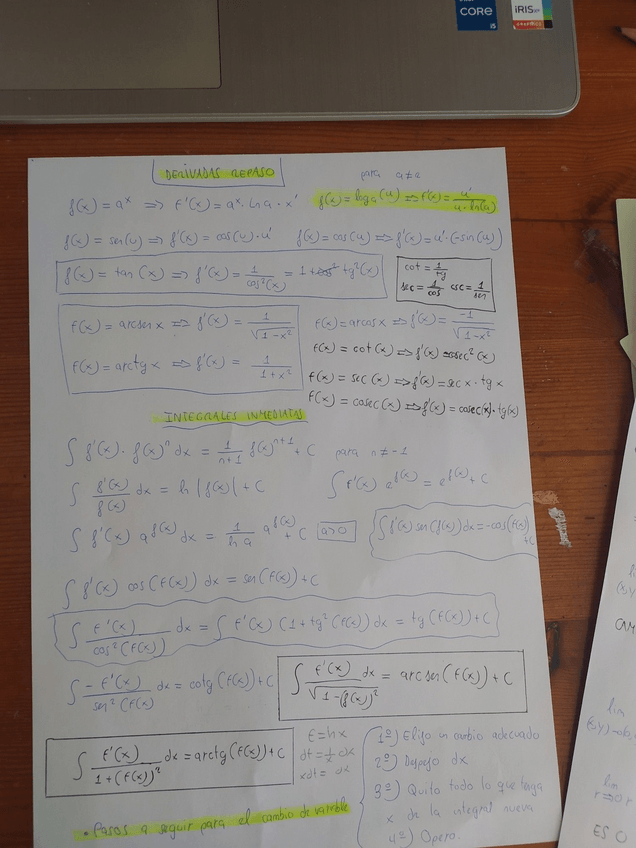 CORE
i5
iRIS xe
DERIVADAS REPASO
para a≠e
f(x) = a^x ⇒ f'(x) = a^x · ln a · x'
f(x) = log a (u) ⇒ f'(x) = u' / (u · ln(a))
f(x) = sen(u) ⇒ f'(x) = cos(u) · u'
f(x) = cos(u) ⇒ f'(x) = u' · (-sin(u))
f(x) = tan(x) ⇒ f'(x) = 1/cos²(x) = 1 + tg²(x)
cot = 1/tg
sec = 1/cos csc = 1/sen
f(x) = arcsen x ⇒ f'(x) = 1/√(1-x²)
f(x) = arcos x ⇒ f'(x) = -1/√(1-x²)
f(x) = arctg x ⇒ f'(x) = 1/(1+x²)
f(x) = cot(x) ⇒ f'(x) = -cosec²(x)
f(x) = sec(x) ⇒ f'(x) = sec x · tg x
f(x) = cosec(x) ⇒ f'(x) = cosec(x) · tg(x)
INTEGRALES INMEDIATAS
∫ f'(x) · f(x)^n dx = 1/(n+1) f(x)^(n+1) + C para n ≠ -1
∫ f'(x)/f(x) dx = ln |f(x)| + C
∫ f'(x) e^f(x) = e^f(x) + C
∫ f'(x) a^f(x) dx = 1/(ln a) a^f(x) + C a>0
∫ f'(x) sen(f(x)) dx = -cos(f(x)) + C
∫ f'(x) cos(f(x)) dx = sen(f(x)) + C
∫ f'(x)/cos²(f(x)) dx = ∫ f'(x) (1 + tg²(f(x))) dx = tg(f(x)) + C
∫ -f'(x)/sen²(f(x) dx = cotg(f(x)) + C
∫ f'(x)/√(1-(f(x))²) dx = arcsen(f(x)) + C
∫ f'(x)/(1+(f(x))²) dx = arctg(f(x)) + C
t = ln x
dt = 1/x dx
xdt = dx
• Pasos a seguir para el cambio de variable
1º) Elijo un cambio adecuado
2º) Despejo dx
3º) Quito todo lo que tenga
x de la integral nueva
4º) Opero.
lim
lim
r→0
ES 0